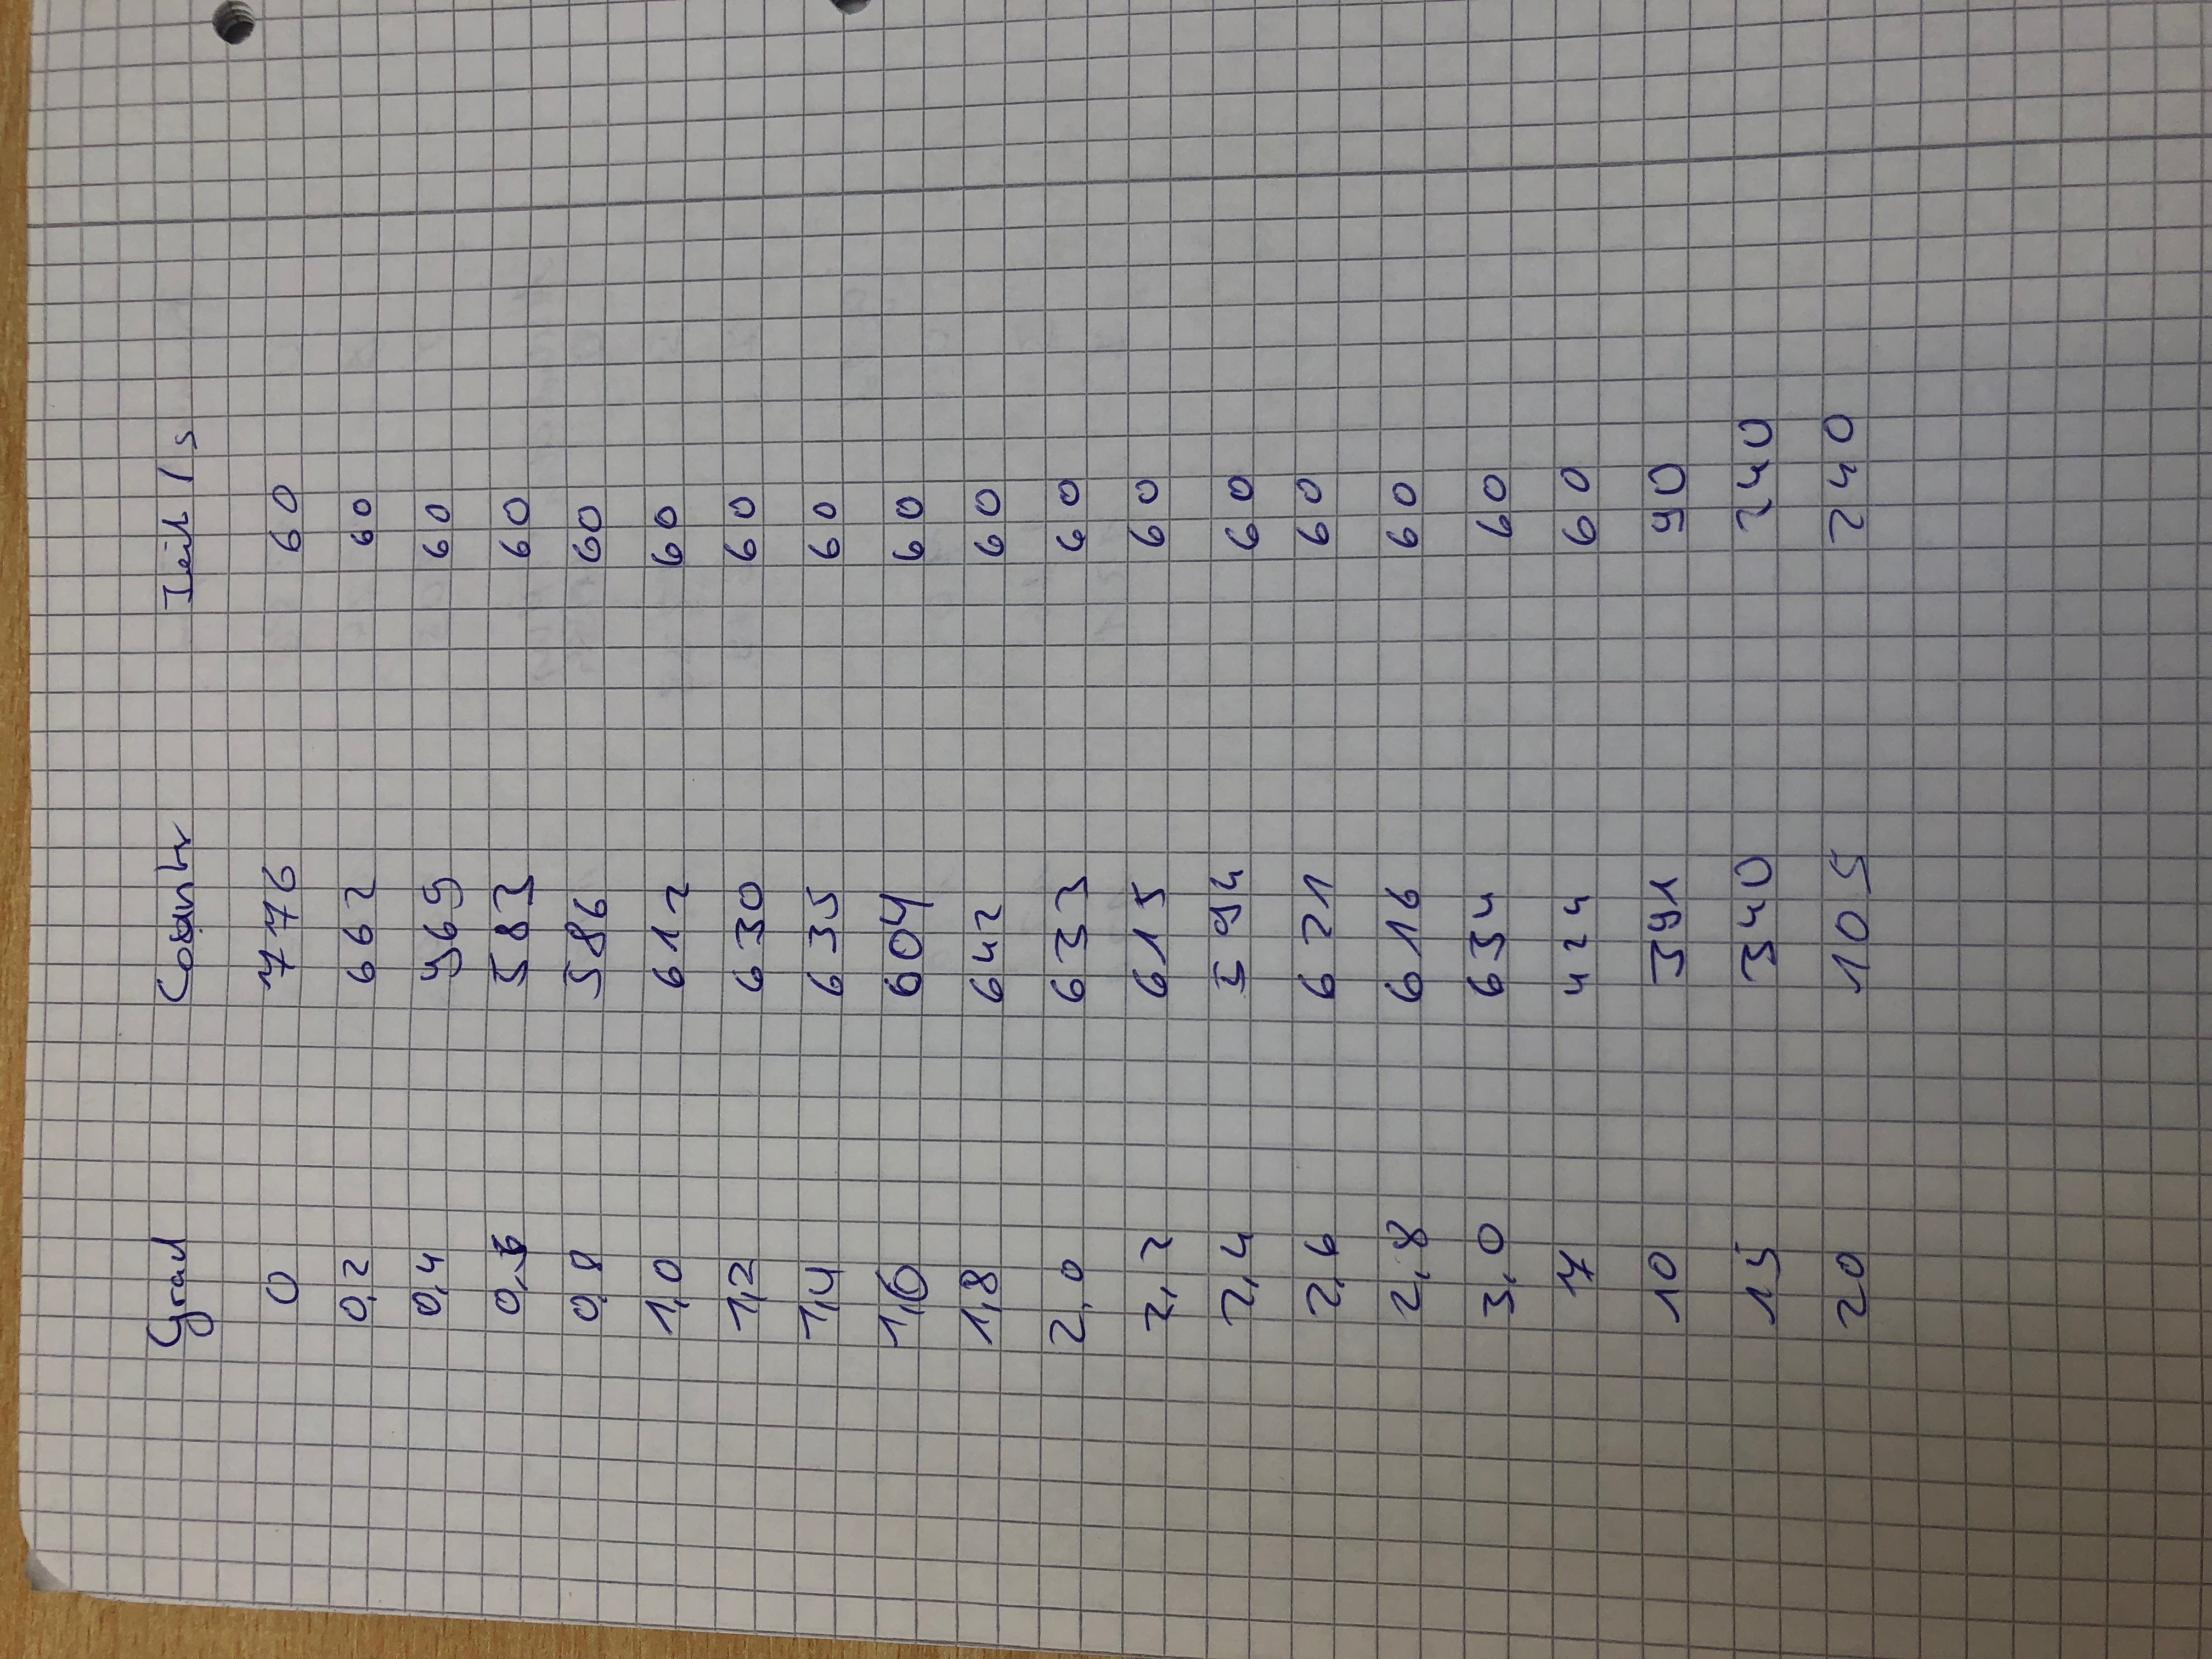 Grad Counter Zeit / s
0 776 60
0,2 662 60
0,4 969 60
0,6 583 60
0,8 586 60
1,0 612 60
1,2 630 60
1,4 635 60
1,6 604 60
1,8 642 60
2,0 633 60
2,2 615 60
2,4 594 60
2,6 621 60
2,8 616 60
3,0 634 60
7 424 60
10 391 90
15 340 240
20 105 240